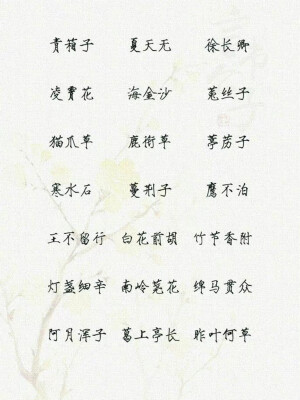 青箱子 夏天无 徐长卿
凌霄花 海金沙 菟丝子
猫爪草 鹿衔草 葶苈子
寒水石 蔓荆子 鹰不泊
王不留行 白花前胡 竹节香附
灯盏细辛 南岭荛花 绵马贯众
阿月浑子 葛上亭长 昨叶何草